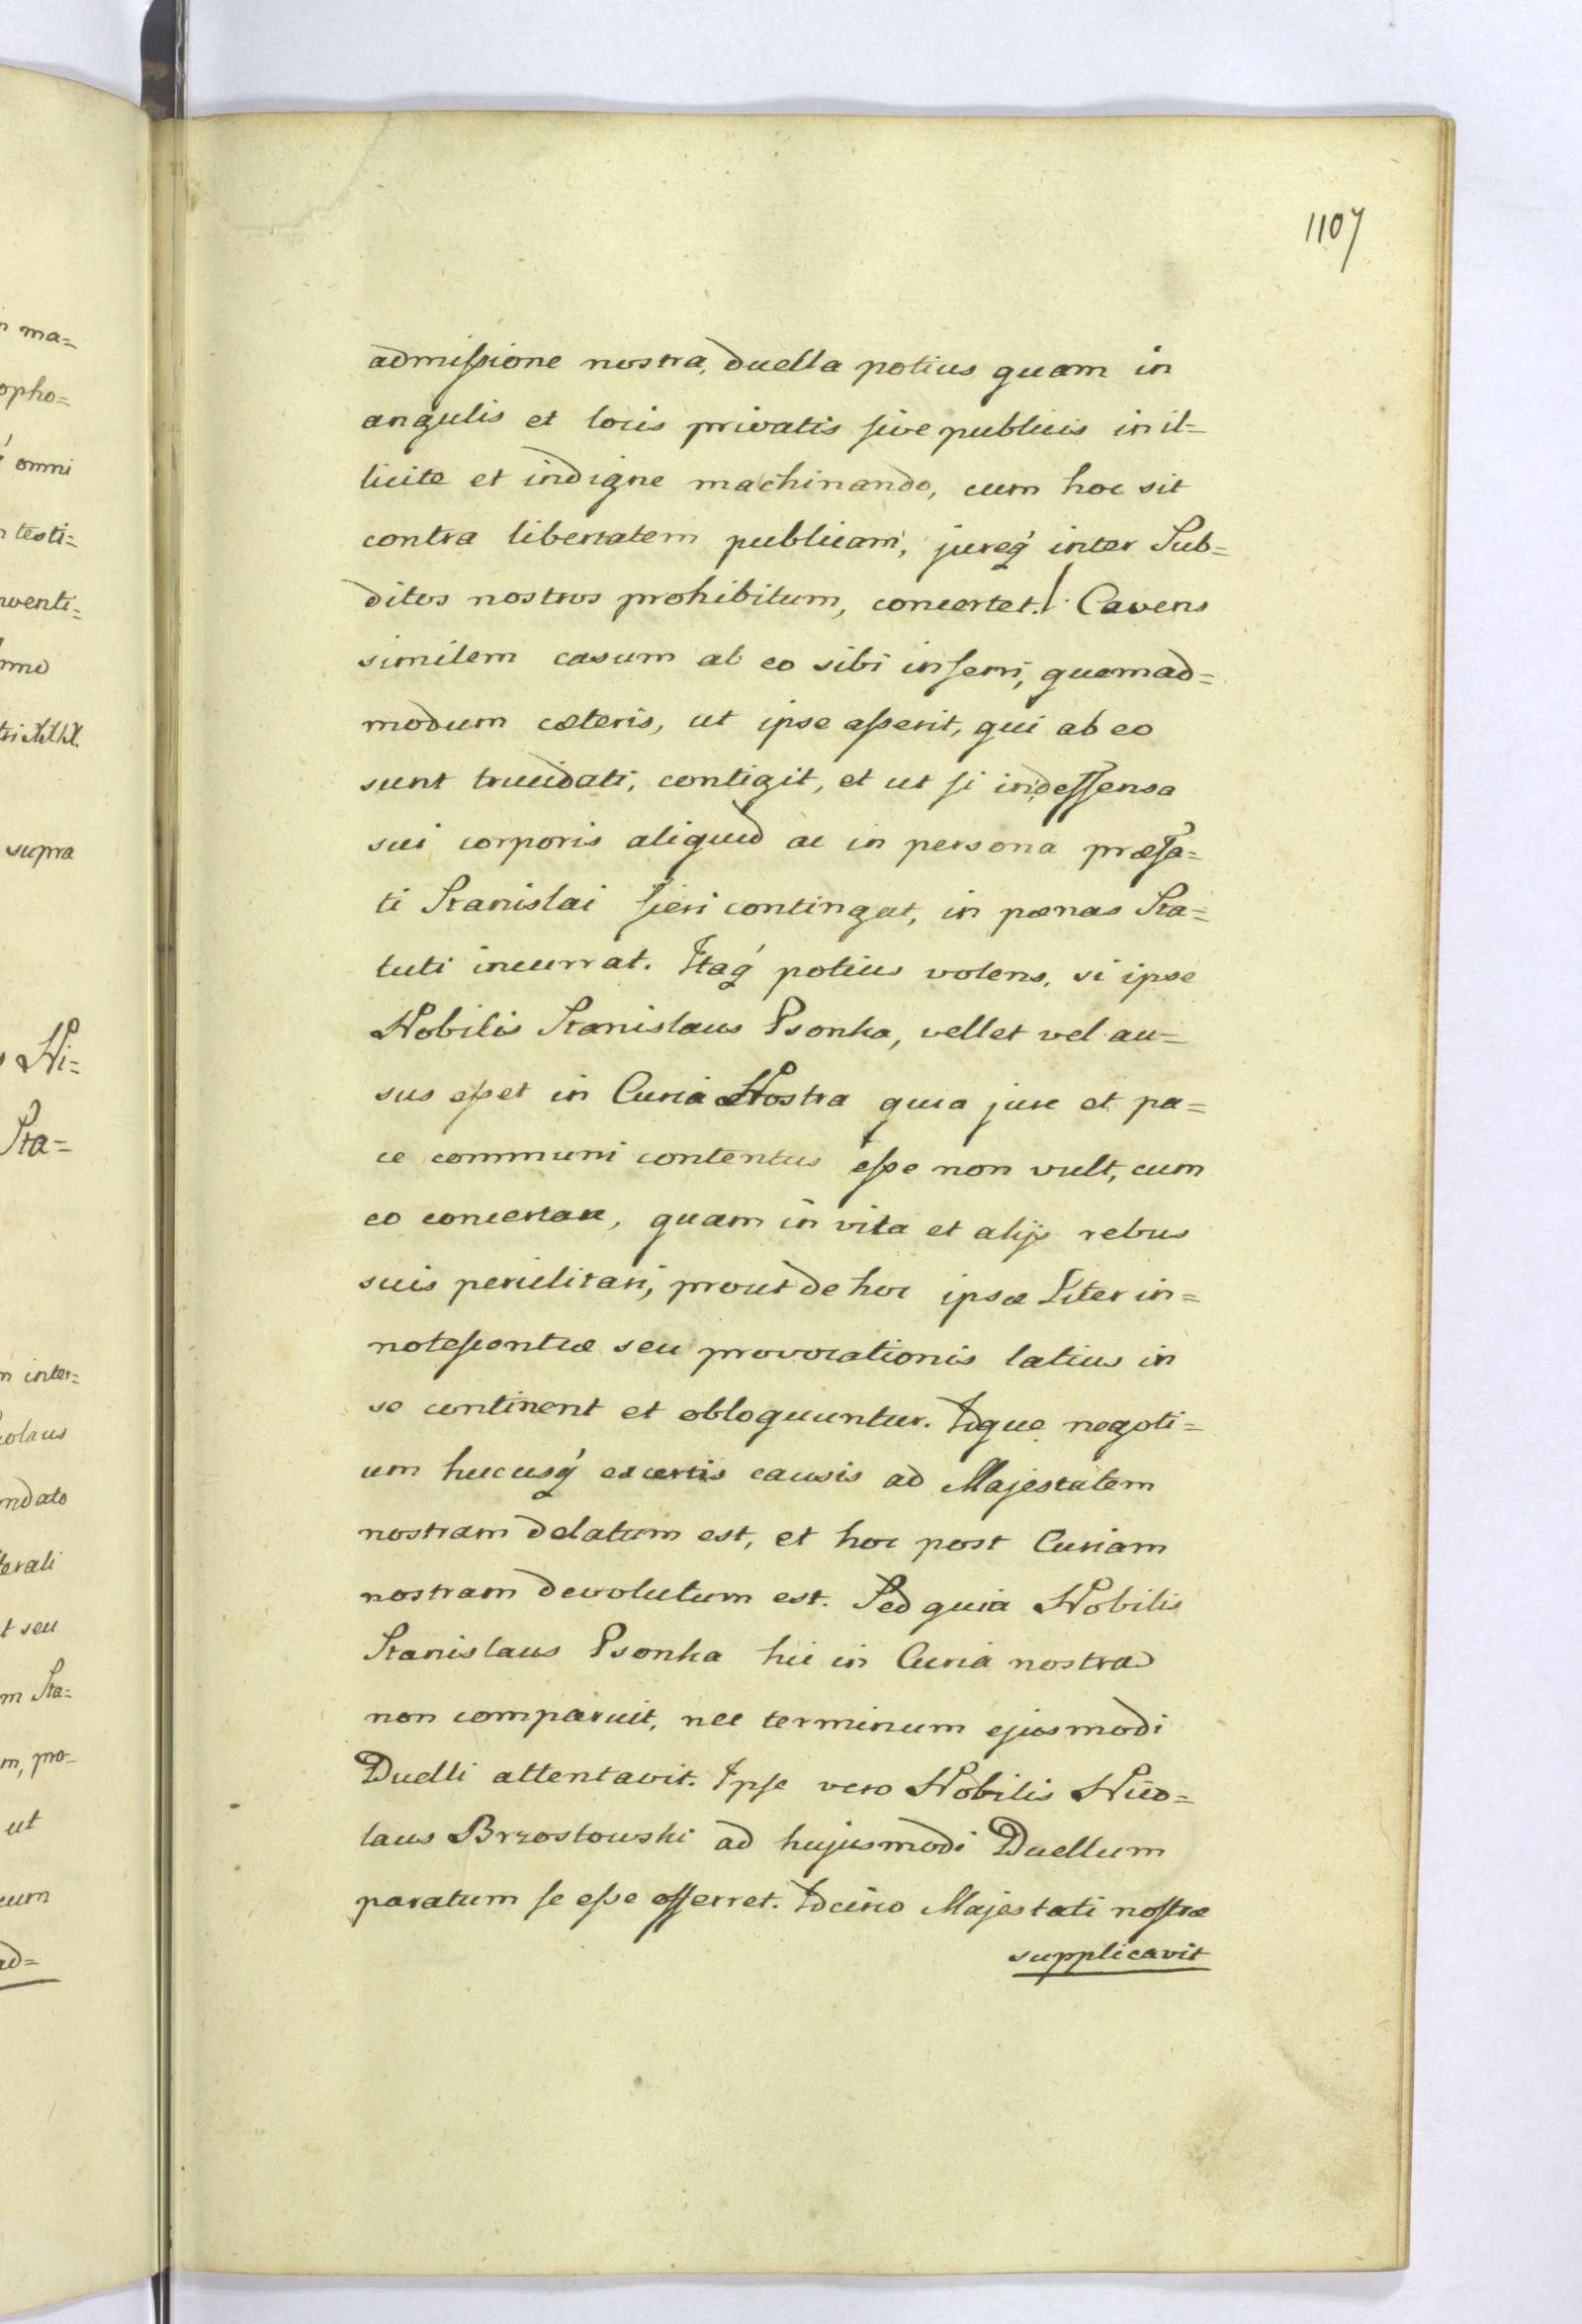 1107
admissione nostra, duella potius quam in
angulis et locis privatis sive publicis in il=
licite et indigne machinando, cum hoc sit
contra libertatem publicam, jureq́ inter Sub=
ditos nostros prohibitum, concertet. Cavens
similem casum ab eo sibi inferri, quemad=
modum cæteris, ut ipse asserit, qui ab eo
sunt trucidati, contigit, et ut si indeffensa
sui corporis aliquid ac in persona præfa=
ti Stanislai fieri contingat, in pœnas Sta=
tuti incurrat. Itaq́ potius volens, si ipse
Nobilis Stanislaus Psonka, vellet vel au=
sus esset in Curia Nostra quia jure et pa=
ce communi contentus esse non vult, cum
eo concertare, quam in vita et alijs rebus
suis periclitari, prout de hoc ipsæ Liter in=
notescentiæ seu provocationis latius in
se continent et obloquuntur. Idque negoti=
um hucusq́ ex certis causis ad Majestatem
nostram delatum est, et hoc post Curiam
nostram devolutum est. Sed quia Nobilis
Stanislaus Psonka hic in Curia nostra
non comparuit, nec terminum ejusmodi
Duelli attentavit. Ipse vero Nobilis Nico=
laus Brzostowski ad hujusmodi Duellum
paratum se esse offerret. Idcirco Majestati nostræ
supplicavit
ma=
opho=
omni
testi=
venti=
supra
Ni=
Sta=
inter=
colaus
ndato
terali
t seu
m Sta=
m, pro=
ut
cum
ad=